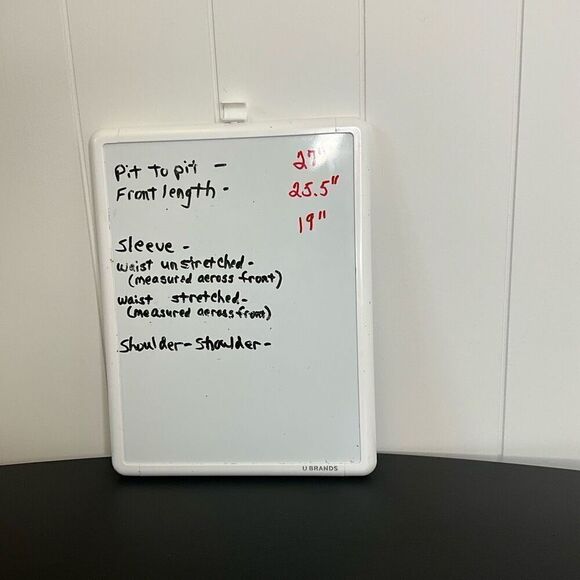 Pit to pit - 27"
Front length - 25.5"
19"
Sleeve -
waist unstretched -
(measured across front)
waist stretched -
(measured across front)
Shoulder - Shoulder -
U BRANDS